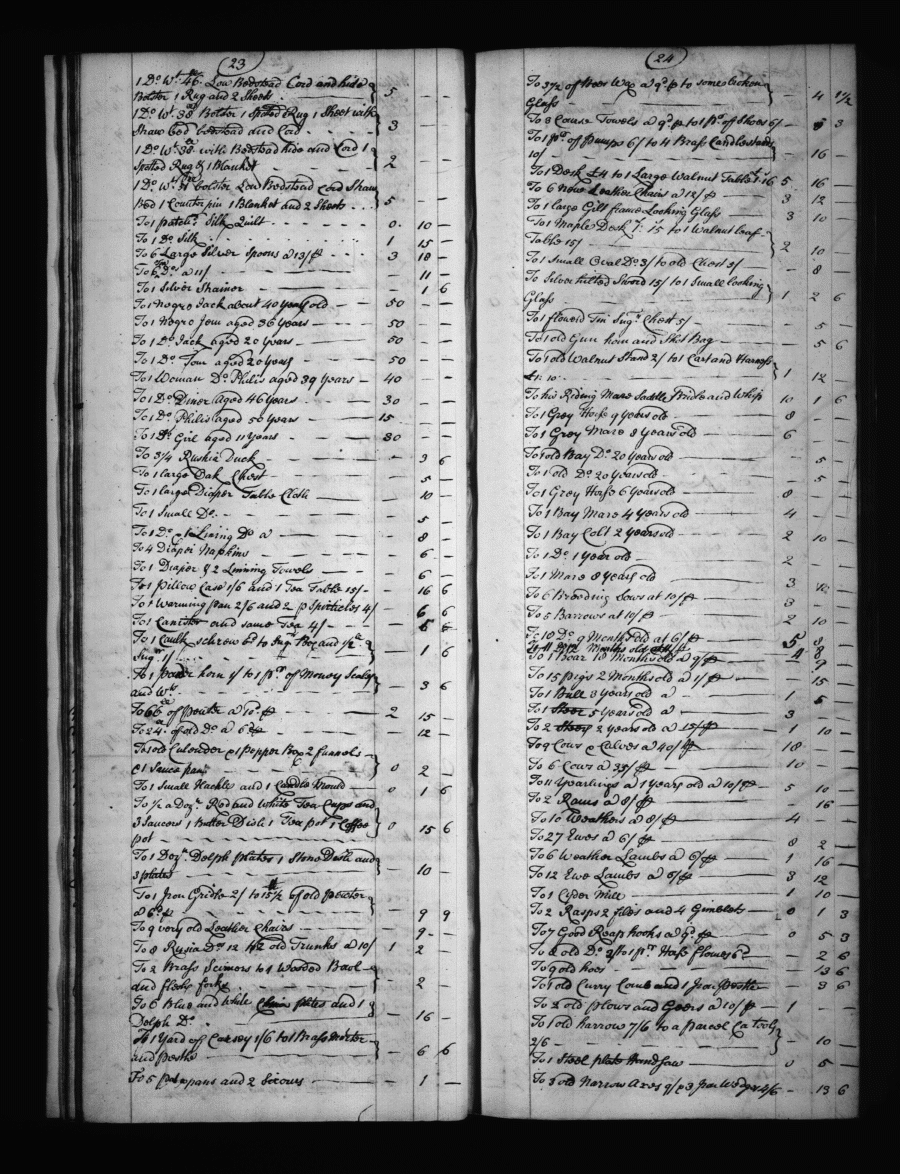 23
1 Do. Wt. 46. Low Bedstead Cord and hide
Bolster 1 Rug and 2 Sheets 5 - -
1 Do. Wt. 38 Bolster 1 spoted Rug 1 Sheet with
Straw bed bedstead and Cord 3 - -
1 Do. Wt. 38. with Bedstead hide and Cord 1
Spotted Rug & 1 Blanket 2 - -
1 Do. Wt. 31 bolster Low Bedstead Cord Straw
Bed 1 Counterpin 1 Blanket and 2 Sheets 5 - -
To 1 patch Silk Quilt 0. 10 -
To 1 Do. Silk 1 15 -
To 6 Large Silver Spoons a 13/ 3 18 -
To 6 Do. a 11/ - 11 -
To 1 Silver Strainer - 1 6
To 1 Negro Jack about 40 years old 50 - -
To 1 Negro Jem aged 36 Years 50 - -
To 1 Do. Jack aged 20 Years 50 - -
To 1 Do. Tom aged 20 years 50 - -
To 1 Woman Do. Philis aged 39 Years 40 - -
To 1 Do. Diner aged 46 Years 30 - -
To 1 Do. Philis aged 50 Years 15 - -
To 1 Do. Girl aged 11 Years 30 - -
To 3/4 Rushia Duck - 3 6
To 1 large Oak Chest - 5 -
To 1 large Diaper Table Cloth - 10 -
To 1 Small Do. - 5 -
To 1 Do. Lining Do. a - 8 -
To 4 Diaper Napkins - 6 -
To 1 Diaper & 2 Linning Towels - 6 -
To 1 Pillow Case 1/6 and 1 Tea Table 15/ - 16 6
To 1 Warming pan 2/6 and 2 p Specticles 4/ 6 6
To 1 Canister and some Tea 4/
To 1 Caulk schrew 6d to Sugr. Box and 1/2
Sugr. 1/ - 1 6
To 1 powder horn 1/ to 1 pr. of Money Scales
and Wts. - 3 6
To 66 of pewter a 10d. 2 15 -
To 24 of old Do. a 6 - 12 -
To 1 old Culender & 1 pepper Box 2 funnels
& 1 Sauce pan 0 2 -
To 1 Small Hackle and 1 Candle Mould 0 1 6
To 1/2 a Dozn. Red and White Tea Cups and
3 Saucers 1 Butter Dish 1 Tea pot 1 Coffee
pot 0 15 6
To 1 Dozn. Delph plates 1 Stone Dish and
3 plates - 10 -
To 1 Iron Gridle 2/ to 15 1/2 of old pewter
a 6d. - 9 9
To 9 very old Leather Chairs - 9 -
To 8 Rusia Do. 12 old Trunks a 10/ 1 2
To 2 Brass Scimors to 1 Wooden Bowl
and flesh fork - 2 -
To 6 Blue and White China plates and 1
Delph Do. - 16 -
To 1 Yard of Carsey 1/6 to 1 Brass Morter
and pestle - 6 6
To 5 pans and 2 - 1 -
24
To 37 1/2 of Bees Wax a 9d. p to some broken
Glass - 4 1 1/2
To 8 Course Towels a 9d. p to 1 pr. of Shoes 6/ - 3
To 1 pr. of pumps 6/ to 4 Brass Candlesticks
10/ - 16 -
To 1 Desk £4 to 1 Large Walnut Table 1.16 5 16
To 6 New Leather Chairs a 12/ 3 12
To 1 large Gilt frame Looking Glass 3 10
To 1 Maple Desk 15 to 1 Walnut leaf
Table 15/ 2 10
To 1 Small Oval Do. 3/ to old Chest 5/ - 8
To Silver hilted Sword 15/ to 1 Small looking
Glass 1 2 6
To 1 flowerd Tin Sugr. Chest 5/ - 5 -
To 1 old Gun horn and Shot Bag - 5 6
To 1 old Walnut Stand 2/ to 1 Cart and Harness
£1: 10 1 12
To his Riding Mare Saddle Bridle and Whip 10 1 6
To 1 Grey Horse 9 years old 8 - -
To 1 Grey Mare 8 Years old 6 - -
To 1 old Bay Do. 20 Years old - 5 -
To 1 old Do. 20 Years old - 5 -
To 1 Grey Horse 6 Years old 8 - -
To 1 Bay Mare 4 Years old 4 - -
To 1 Bay Colt 2 Years old 2 10 -
To 1 Do. 1 Year old 2 - -
To 1 Mare 8 years old 3
To 6 Breeding Sows at 10/ 3 - -
To 5 Barrows at 10/ 2 10
To 10 Do. 9 Months old at 6/
Months old at
To 1 Boar 18 Months old a 9/ - 9
To 15 pigs 2 Months old a 1/ - 15 -
To 1 Bull 3 Years old a 1 5
To 1 Steer 5 Years old a 3 - -
To 2 Steers 2 years old a 15/ 1 10
To 9 Cows & Calves a 40/ 18 - -
To 6 Cows a 35/ 10 10 -
To 11 Yearlings a 1 Years old a 10/ 5 10
To 2 Rams a 8/ - 16 -
To 10 Weathers a 8/ 4 - -
To 27 Ewes a 6/ 8 2 -
To 6 Weather Lambs a 6/ 1 16 -
To 12 Ewe Lambs a 6/ 3 12 -
To 1 Cyder Mill 1 10
To 2 Rasps 2 files and 4 Gimblets 0 1 3
To 7 Good Reap hooks a 9d. 0 5 3
To 2 old Do. to 1 pr. Horse flewes 6d - 2 6
To 9 old hoes - 13 6
To 1 old Curry Comb and 1 Iron pestle - 3 6
To 2 old plows and Geers a 10/ 1 - -
To 1 old harrow 7/6 to a parcel Ca Tools
2/6 - 10 -
To 1 Steel plate Handsaw 0 5 -
To 3 old Narrow Axes 9/ & 3 Iron Wedges 4/6 - 13 6